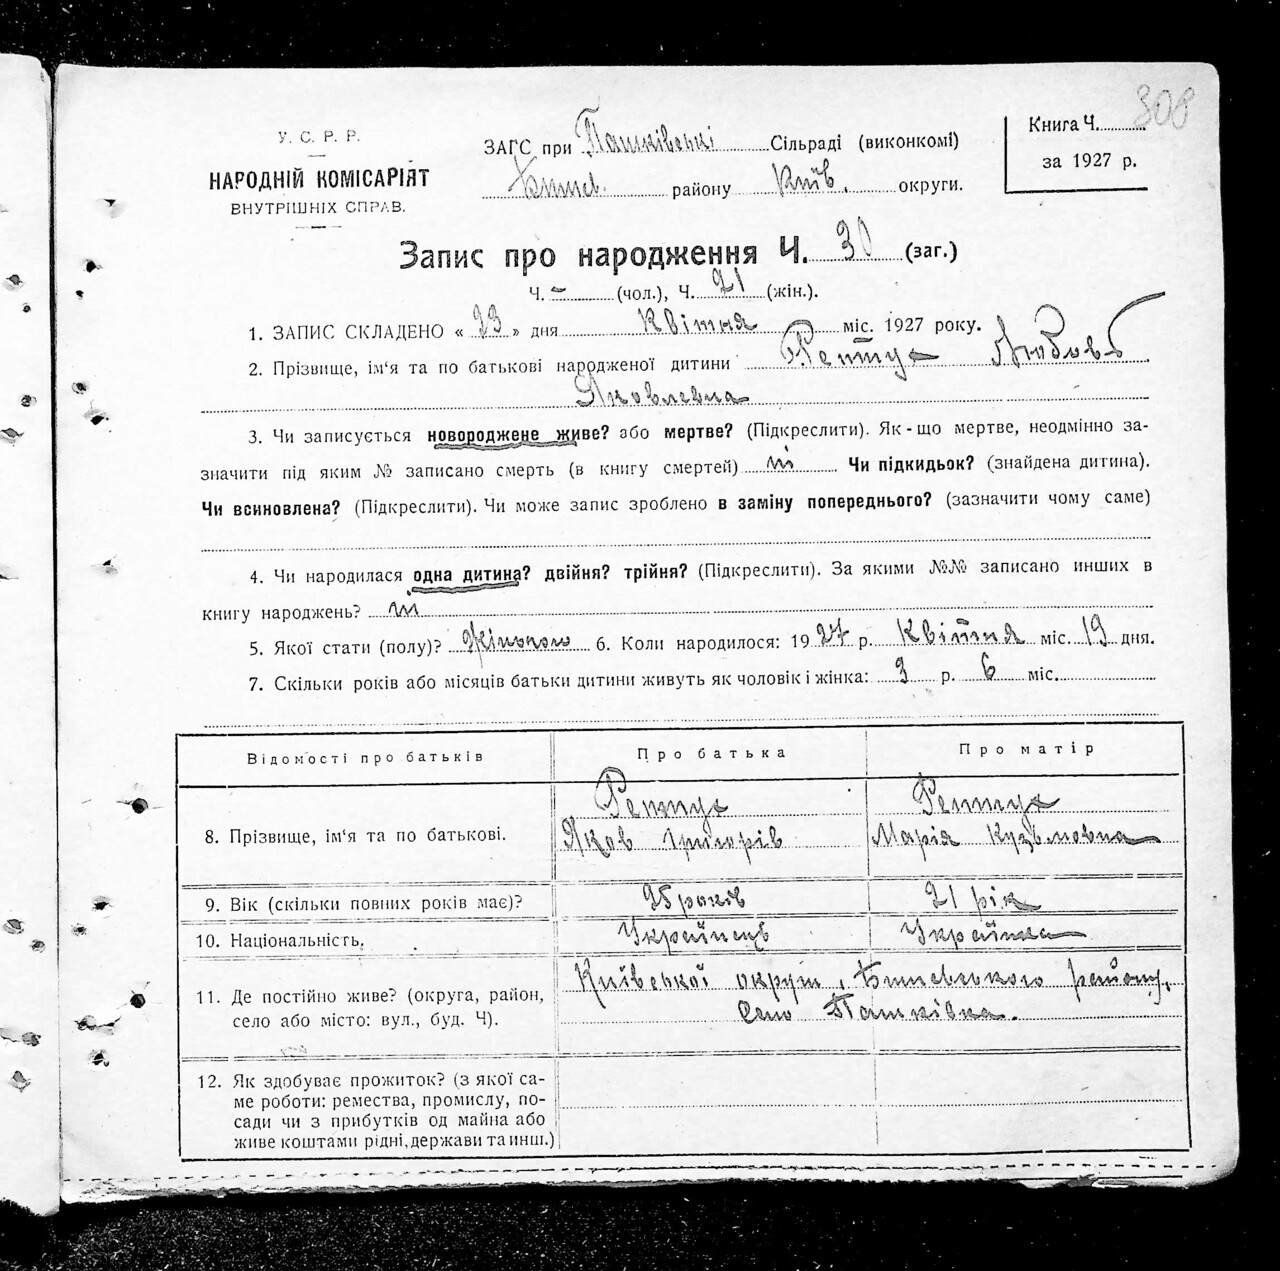 308
У. С. Р. Р.
НАРОДНІЙ КОМІСАРІЯТ
ВНУТРІШНІХ СПРАВ.
ЗАГС при Пашківські Сільраді (виконкомі)
Бишев. району Київ. округи.
Книга Ч.
за 1927 р.
Запис про народження Ч. 30 (заг.)
Ч. - (чол.), Ч. 21 (жін.).
1. ЗАПИС СКЛАДЕНО « 23 » дня Квітня міс. 1927 року.
2. Прізвище, ім‘я та по батькові народженої дитини Рептух Любовь
Яковлевна
3. Чи записується новороджене живе? або мертве? (Підкреслити). Як-що мертве, неодмінно за-
значити під яким № записано смерть (в книгу смертей) ні Чи підкидьок? (знайдена дитина).
Чи всиновлена? (Підкреслити). Чи може запис зроблено в заміну попереднього? (зазначити чому саме)
4. Чи народилася одна дитина? двійня? трійня? (Підкреслити). За якими №№ записано инших в
книгу народжень? ні
5. Якої стати (полу)? жіночого 6. Коли народилося: 1927 р. Квітня міс. 19 дня.
7. Скільки років або місяців батьки дитини живуть як чоловік і жінка: 3 р. 6 міс.
Відомості про батьків Про батька Про матір
8. Прізвище, ім‘я та по батькові. Рептух Рептух
Яков Григорів Марія Кузьмовна
9. Вік (скільки повних років має)? 25 років 21 рік
10. Національність. Українець Українка
11. Де постійно живе? (округа, район,
село або місто: вул., буд. Ч). Київської округи, Бишевського району,
село Пашківка.
12. Як здобуває прожиток? (з якої са-
ме роботи: ремества, промислу, по-
сади чи з прибутків од майна або
живе коштами рідні, держави та инш.)